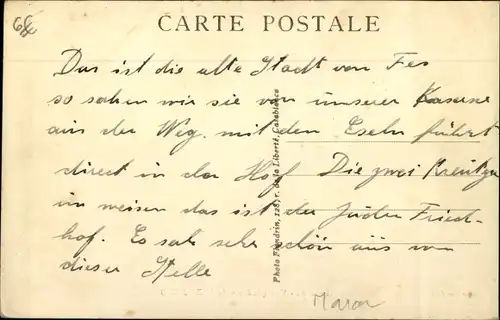 CARTE POSTALE
Das ist die alte Stadt von Fes
so sahen wir sie von unserer Kaserne
aus der Weg. mit den Eseln führt
direct in den Hof Die zwei Kreutze
im weisen das ist der Juden Fried-
hof. Es sah sehr schön aus von
dieser Stelle
Photo Flandrin, 128, r. de la Liberté, Casablanca